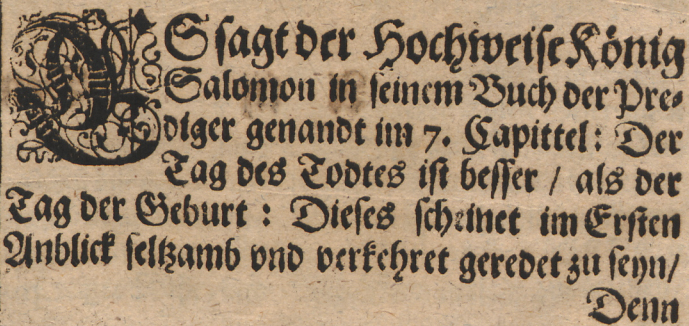 ES sagt der Hochweise König
Salomon in seinem Buch der Pre-
diger genandt im 7. Capittel: Der
Tag des Todtes ist besser / als der
Tag der Geburt: Dieses scheinet im Ersten
Anblick seltzamb vnd verkehret geredet zu seyn/
Denn